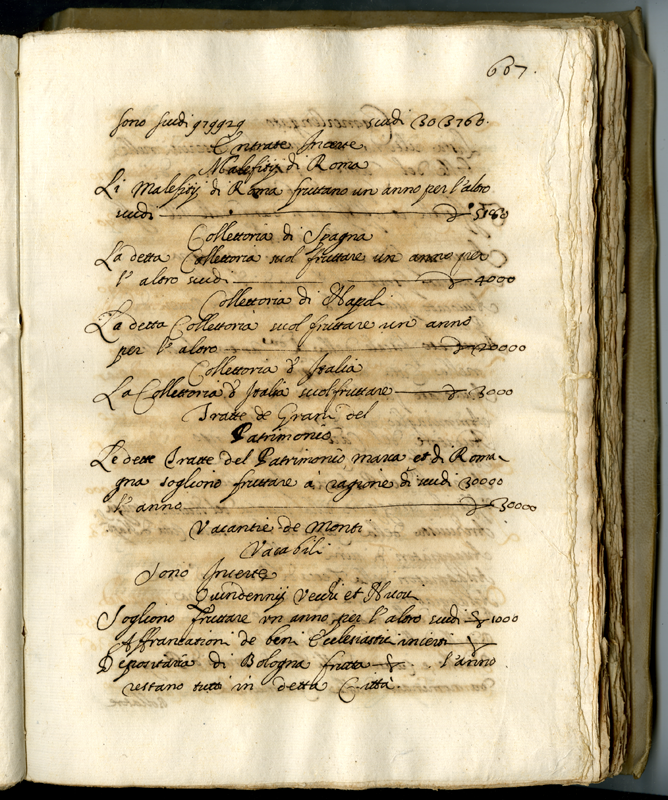 607.
sono scudi 979929 scudi 303760.
Entrate Incerte
Malefitij di Roma
Li Malefitij di Roma fruttano un anno per l'altro
scudi 5160
Collettoria di Spagna
La detta Collettoria suol fruttare un anno per
l'altro scudi 4000
Collettoria di Napoli
La detta Collettoria suol fruttare un anno
per l'altro 20000
Collettoria d'Italia
La Collettoria d'Italia suol fruttare 3000
Tratte de Grani del
Patrimonio
Le dette Tratte del Patrimonio, marca et di Roma-
gna sogliono fruttare à ragione di scudi 30000
l'anno 30000
Vacantie de Monti
Vacabili
Sono Incerte
Quindennij Vecchi et Nuovi
Sogliono fruttare un anno per l'altro scudi 1000
Affrancationi de beni Ecclesiastici incerti
Depositaria di Bologna frutta l'anno
restano tutti in detta Città